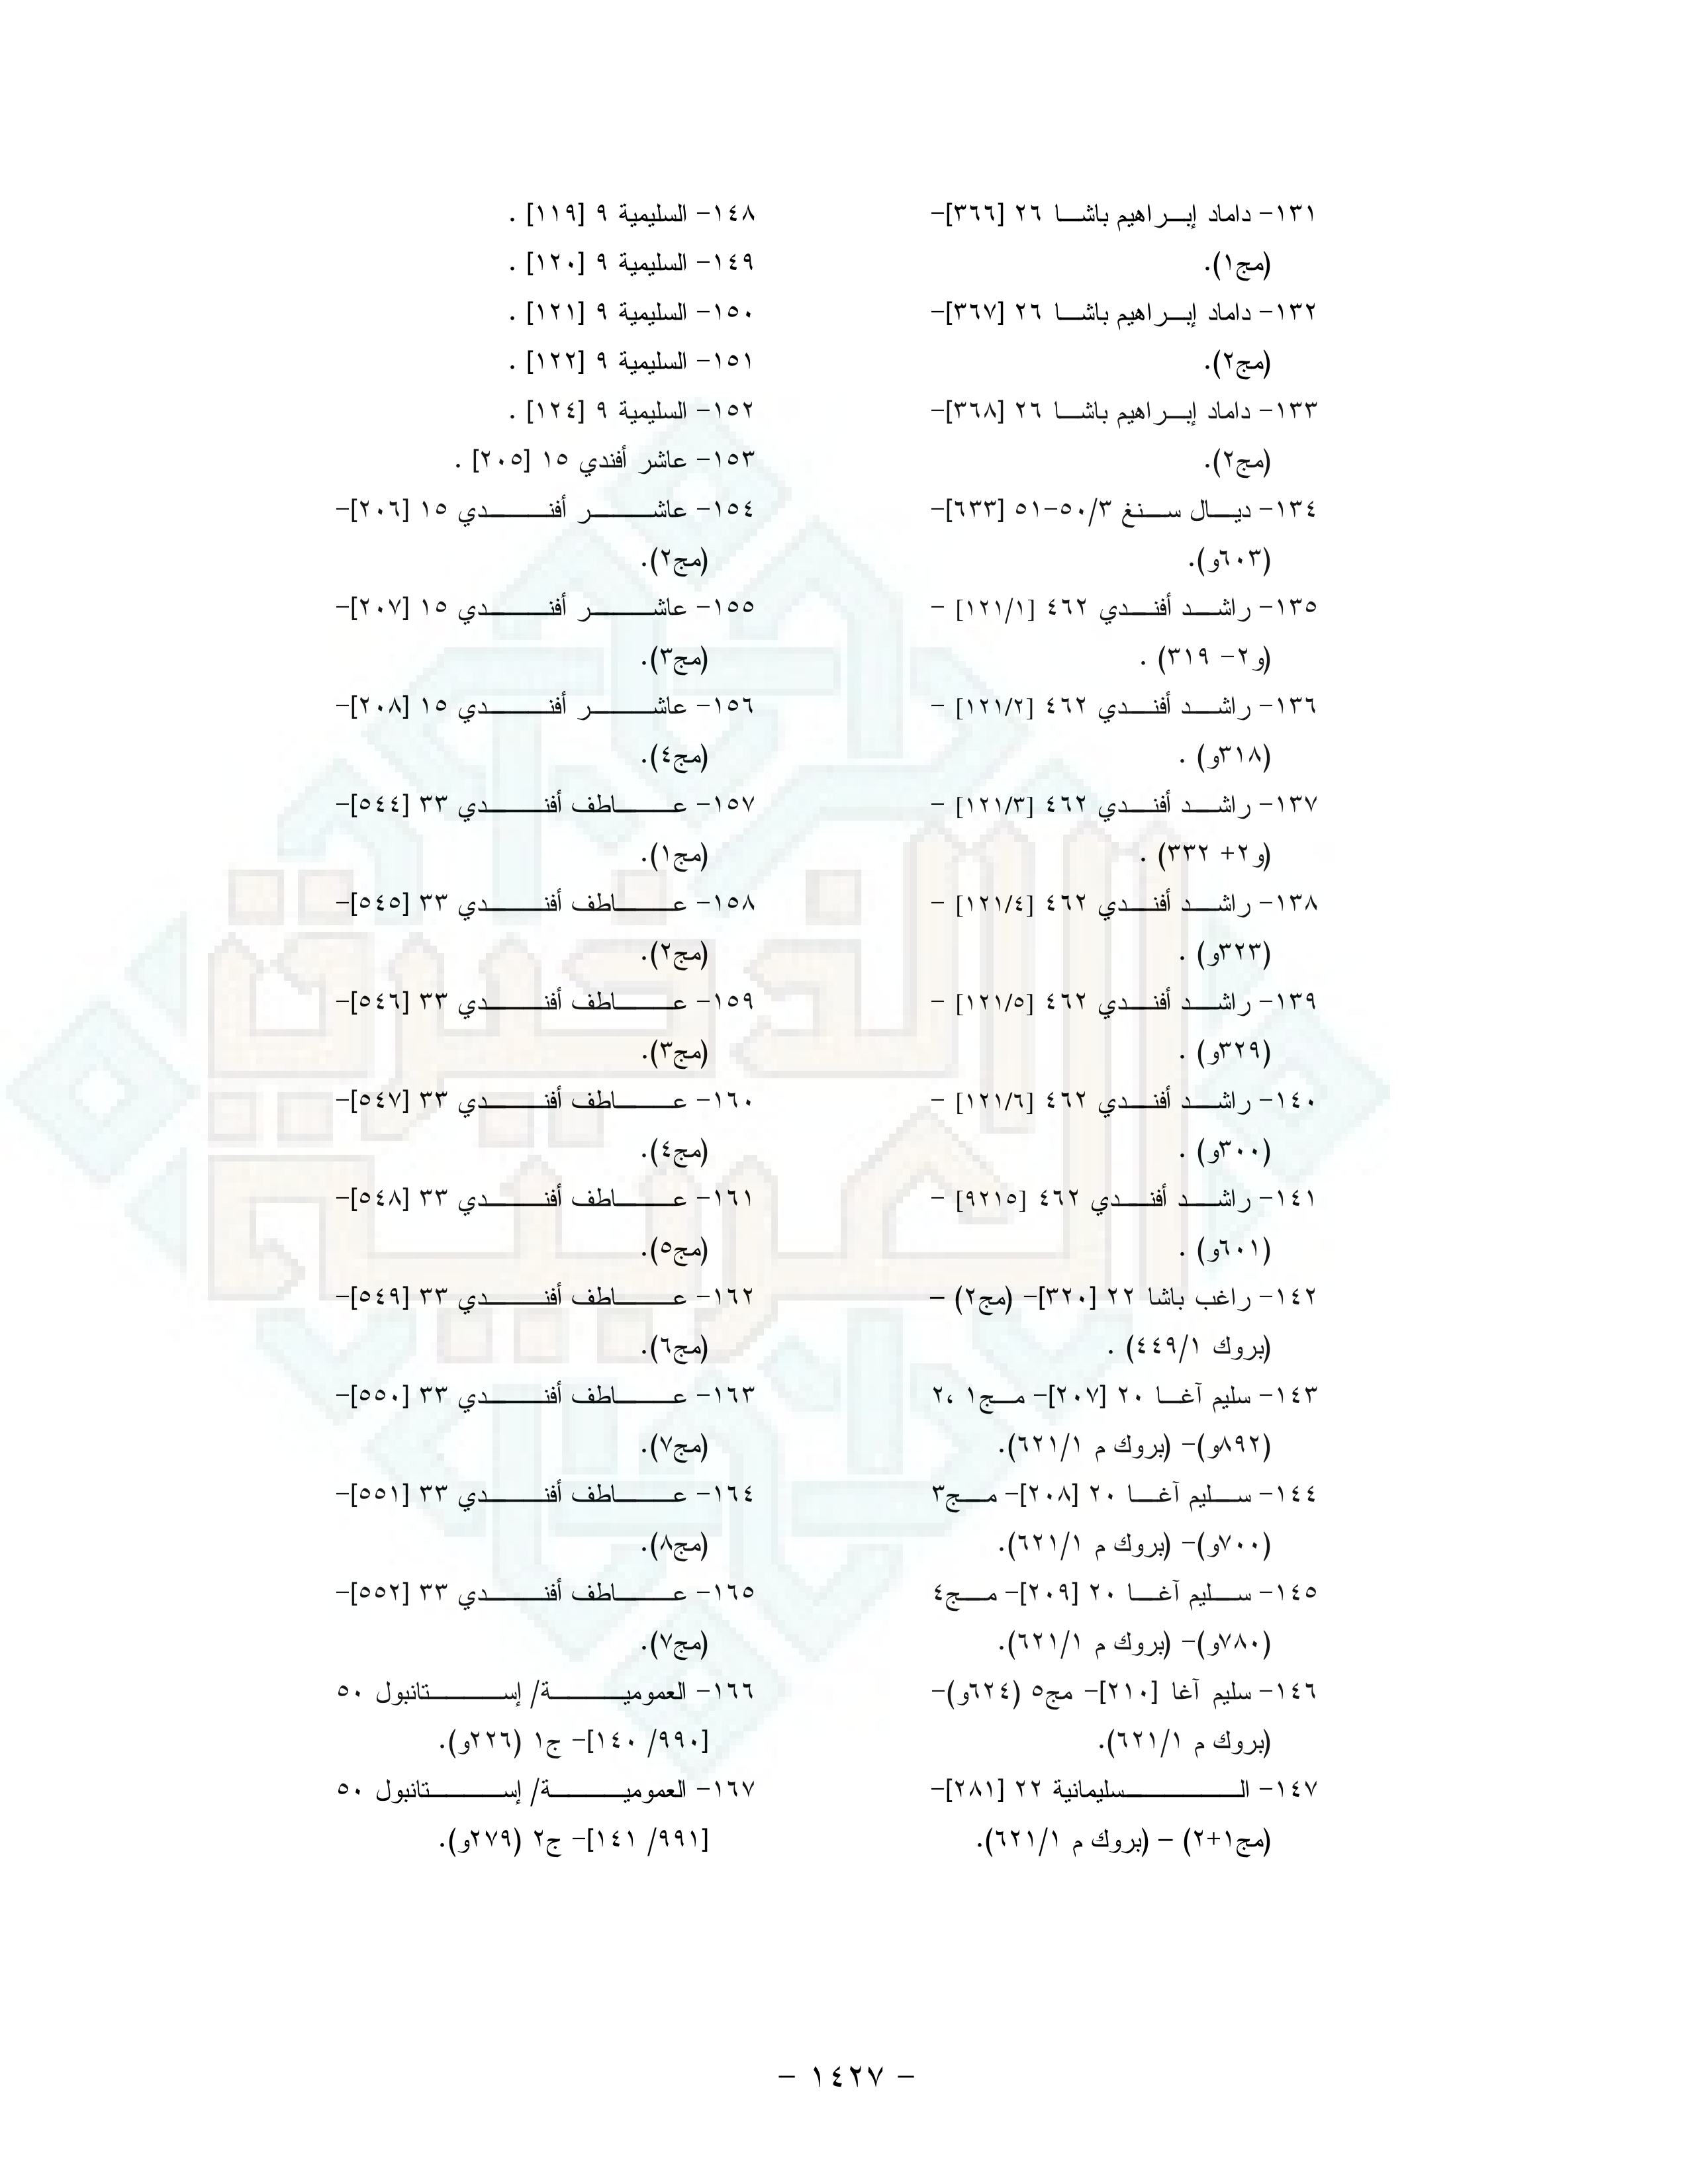 ١٣١- داماد إبراهيم باشا ٢٦ [٣٦٦]-
(مج١).
١٣٢- داماد إبراهيم باشا ٢٦ [٣٦٧]-
(مج٢).
١٣٣- داماد إبراهيم باشا ٢٦ [٣٦٨]-
(مج٢).
١٣٤- ديال سنغ ٥٠/٣-٥١ [٦٣٣]-
(٦٠٣و).
١٣٥- راشد أفندي ٤٦٢ [١٢١/١] -
(و٢- ٣١٩) .
١٣٦- راشد أفندي ٤٦٢ [١٢١/٢] -
(٣١٨و) .
١٣٧- راشد أفندي ٤٦٢ [١٢١/٣] -
(و٢+ ٣٣٢) .
١٣٨- راشد أفندي ٤٦٢ [١٢١/٤] -
(٣٢٣و) .
١٣٩- راشد أفندي ٤٦٢ [١٢١/٥] -
(٣٢٩و) .
١٤٠- راشد أفندي ٤٦٢ [١٢١/٦] -
(٣٠٠و) .
١٤١- راشد أفندي ٤٦٢ [٩٢١٥] -
(٦٠١و) .
١٤٢- راغب باشا ٢٢ [٣٢٠]- (مج٢) –
(بروك ٤٤٩/١) .
١٤٣- سليم آغا ٢٠ [٢٠٧]- مج١ ،٢
(٨٩٢و)- (بروك م ٦٢١/١).
١٤٤- سليم آغا ٢٠ [٢٠٨]- مج٣
(٧٠٠و)- (بروك م ٦٢١/١).
١٤٥- سليم آغا ٢٠ [٢٠٩]- مج٤
(٧٨٠و)- (بروك م ٦٢١/١).
١٤٦- سليم آغا [٢١٠]- مج٥ (٦٢٤و)-
(بروك م ٦٢١/١).
١٤٧- السليمانية ٢٢ [٢٨١]-
(مج١+٢) – (بروك م ٦٢١/١).
١٤٨- السليمية ٩ [١١٩] .
١٤٩- السليمية ٩ [١٢٠] .
١٥٠- السليمية ٩ [١٢١] .
١٥١- السليمية ٩ [١٢٢] .
١٥٢- السليمية ٩ [١٢٤] .
١٥٣- عاشر أفندي ١٥ [٢٠٥] .
١٥٤- عاشر أفندي ١٥ [٢٠٦]-
(مج٢).
١٥٥- عاشر أفندي ١٥ [٢٠٧]-
(مج٣).
١٥٦- عاشر أفندي ١٥ [٢٠٨]-
(مج٤).
١٥٧- عاطف أفندي ٣٣ [٥٤٤]-
(مج١).
١٥٨- عاطف أفندي ٣٣ [٥٤٥]-
(مج٢).
١٥٩- عاطف أفندي ٣٣ [٥٤٦]-
(مج٣).
١٦٠- عاطف أفندي ٣٣ [٥٤٧]-
(مج٤).
١٦١- عاطف أفندي ٣٣ [٥٤٨]-
(مج٥).
١٦٢- عاطف أفندي ٣٣ [٥٤٩]-
(مج٦).
١٦٣- عاطف أفندي ٣٣ [٥٥٠]-
(مج٧).
١٦٤- عاطف أفندي ٣٣ [٥٥١]-
(مج٨).
١٦٥- عاطف أفندي ٣٣ [٥٥٢]-
(مج٧).
١٦٦- العمومية/ إستانبول ٥٠
[٩٩٠/ ١٤٠]- ج١ (٢٢٦و).
١٦٧- العمومية/ إستانبول ٥٠
[٩٩١/ ١٤١]- ج٢ (٢٧٩و).
الذخيرة
العربية
- ١٤٢٧ -